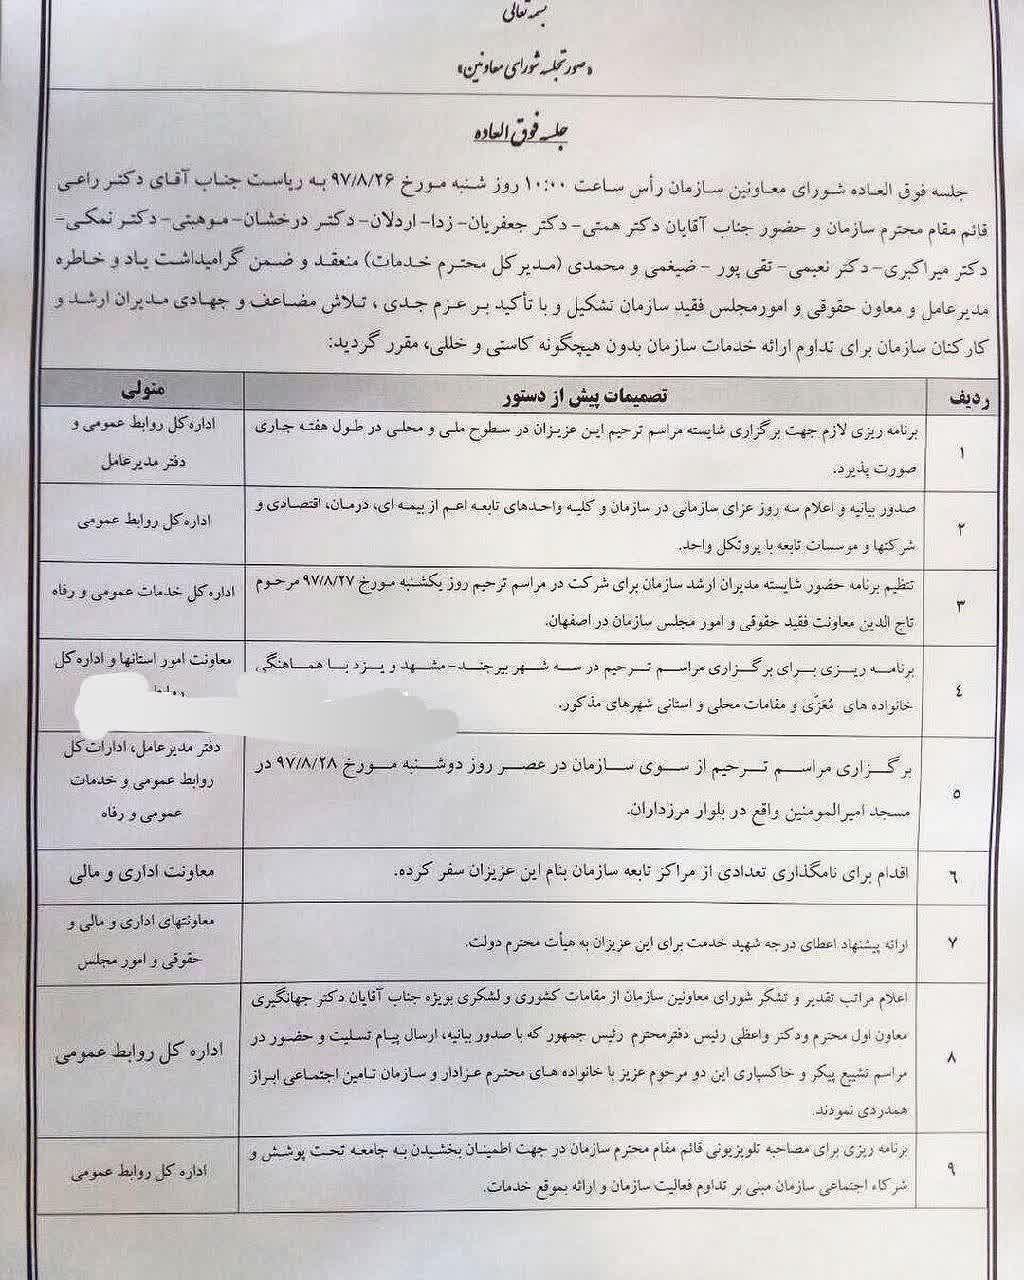 بسمه تعالی
«صورتجلسه شورای معاونین»
جلسه فوق العاده
جلسه فوق العاده شورای معاونین سازمان رأس ساعت ۱۰:۰۰ روز شنبه مورخ ۹۷/۸/۲۶ به ریاست جناب آقای دکتر راعی
قائم مقام محترم سازمان و حضور جناب آقایان دکتر همتی- دکتر جعفریان- زدا- اردلان- دکتر درخشان- موهبتی- دکتر نمکی-
دکتر میراکبری- دکتر نعیمی- تقی پور - ضیغمی و محمدی (مدیرکل محترم خدمات) منعقد و ضمن گرامیداشت یاد و خاطره
مدیرعامل و معاون حقوقی و امورمجلس فقید سازمان تشکیل و با تأکید بر عزم جدی ، تلاش مضاعف و جهادی مدیران ارشد و
کارکنان سازمان برای تداوم ارائه خدمات سازمان بدون هیچگونه کاستی و خللی، مقرر گردید:
ردیف تصمیمات پیش از دستور متولی
۱ برنامه ریزی لازم جهت برگزاری شایسته مراسم ترحیم این عزیزان در سطوح ملی و محلی در طول هفته جاری
صورت پذیرد.
اداره کل روابط عمومی و
دفتر مدیرعامل
۲ صدور بیانیه و اعلام سه روز عزای سازمانی در سازمان و کلیه واحدهای تابعه اعم از بیمه ای، درمان، اقتصادی و
شرکتها و موسسات تابعه با پروتکل واحد.
اداره کل روابط عمومی
۳ تنظیم برنامه حضور شایسته مدیران ارشد سازمان برای شرکت در مراسم ترحیم روز یکشنبه مورخ ۹۷/۸/۲۷ مرحوم
تاج الدین معاونت فقید حقوقی و امور مجلس سازمان در اصفهان.
اداره کل خدمات عمومی و رفاه
٤ برنامه ریزی برای برگزاری مراسم ترحیم در سه شهر بیرجند- مشهد و یزد با هماهنگی
خانواده های مُعَزّی و مقامات محلی و استانی شهرهای مذکور.
معاونت امور استانها و اداره کل
۵ برگزاری مراسم ترحیم از سوی سازمان در عصر روز دوشنبه مورخ ۹۷/۸/۲۸ در
مسجد امیرالمومنین واقع در بلوار مرزداران.
دفتر مدیرعامل، ادارات کل
روابط عمومی و خدمات
عمومی و رفاه
٦ اقدام برای نامگذاری تعدادی از مراکز تابعه سازمان بنام این عزیزان سفر کرده.
معاونت اداری و مالی
۷ ارائه پیشنهاد اعطای درجه شهید خدمت برای این عزیزان به هیأت محترم دولت.
معاونتهای اداری و مالی و
حقوقی و امور مجلس
۸ اعلام مراتب تقدیر و تشکر شورای معاونین سازمان از مقامات کشوری و لشکری بویژه جناب آقایان دکتر جهانگیری
معاون اول محترم ودکتر واعظی رئیس دفترمحترم رئیس جمهور که با صدور بیانیه، ارسال پیام تسلیت و حضور در
مراسم تشییع پیکر و خاکسپاری این دو مرحوم عزیز با خانواده های محترم عزادار و سازمان تامین اجتماعی ابراز
همدردی نمودند.
اداره کل روابط عمومی
۹ برنامه ریزی برای مصاحبه تلویزیونی قائم مقام محترم سازمان در جهت اطمینان بخشیدن به جامعه تحت پوشش و
شرکاء اجتماعی سازمان مبنی بر تداوم فعالیت سازمان و ارائه بموقع خدمات.
اداره کل روابط عمومی